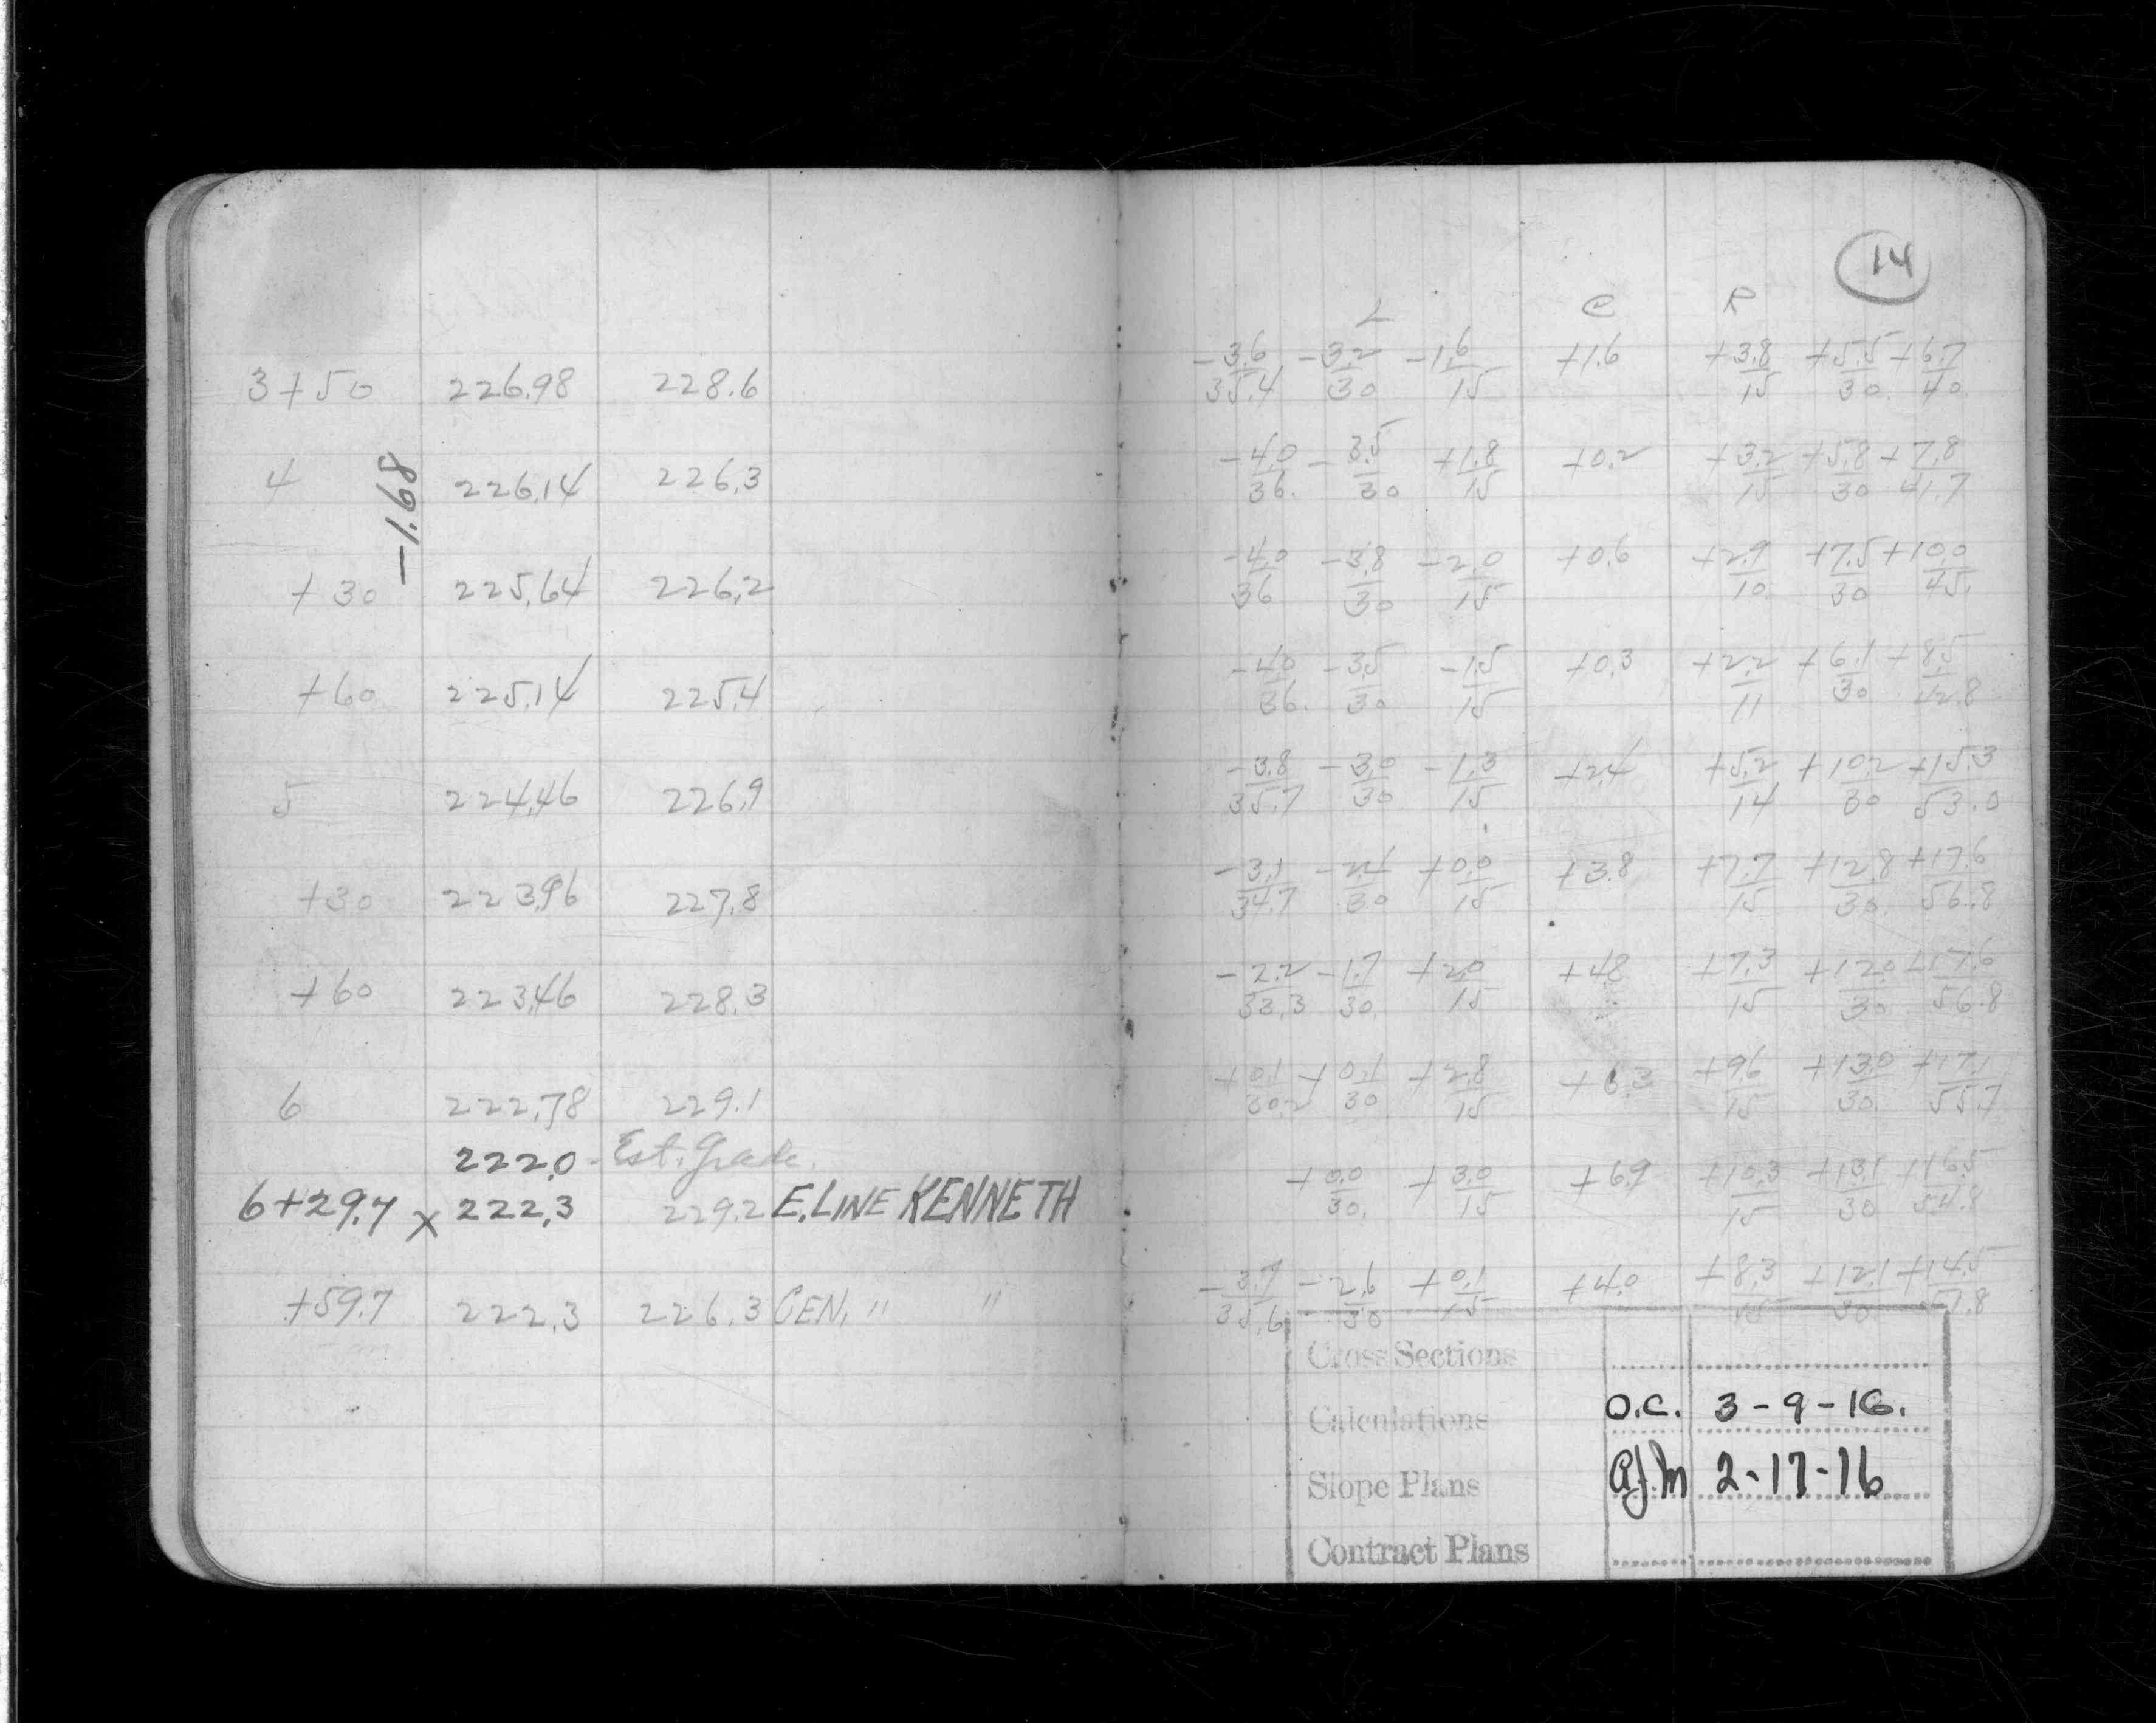 14
L C R
3+50 226.98 228.6 -3.6/35.4 -3.2/30 -1.6/15 +1.6 +3.8/15 +5.5/30 +6.7/40
4 226.14 226.3 -4.0/36. -3.5/30 +1.8/15 +0.2 +3.2/15 +5.8/30 +7.8/41.7
-1.68
+30 225.64 226.2 -4.0/36 -3.8/30 -2.0/15 +0.6 +2.9/10 +7.5/30 +10.0/45.
+60 225.14 225.4 -4.0/36. -3.5/30 -1.5/15 +0.3 +2.2/11 +6.1/30 +8.5/42.8
5 224.46 226.9 -3.8/35.7 -3.0/30 -1.3/15 +2.4 +5.2/14 +10.2/30 +15.3/53.0
+30 223.96 227.8 -3.1/34.7 -2.1/30 +0.0/15 +3.8 +7.7/15 +12.8/30. +17.6/56.8
+60 223.46 228.3 -2.2/33.3 -1.7/30. +2.0/15 +4.8 +7.3/15 +12.0/30 +17.6/56.8
6 222.78 229.1 +0.1/30.2 +0.1/30 +2.8/15 +6.3 +9.6/15 +13.0/30. +17.1/55.7
222.0 - Est. Grade.
6+29.7 x 222.3 229.2 E. LINE KENNETH +0.0/30. +3.0/15 +6.9 +10.3/15 +13.1/30 +16.5/54.8
+59.7 222.3 226.3 CEN. " " -3.7/35.6 -2.6/30 +0.1/15 +4.0 +8.3/15 +12.1/30. +14.5/51.8
Cross Sections
Calculations O.C. 3-9-16.
Slope Plans A.J.M 2-17-16
Contract Plans